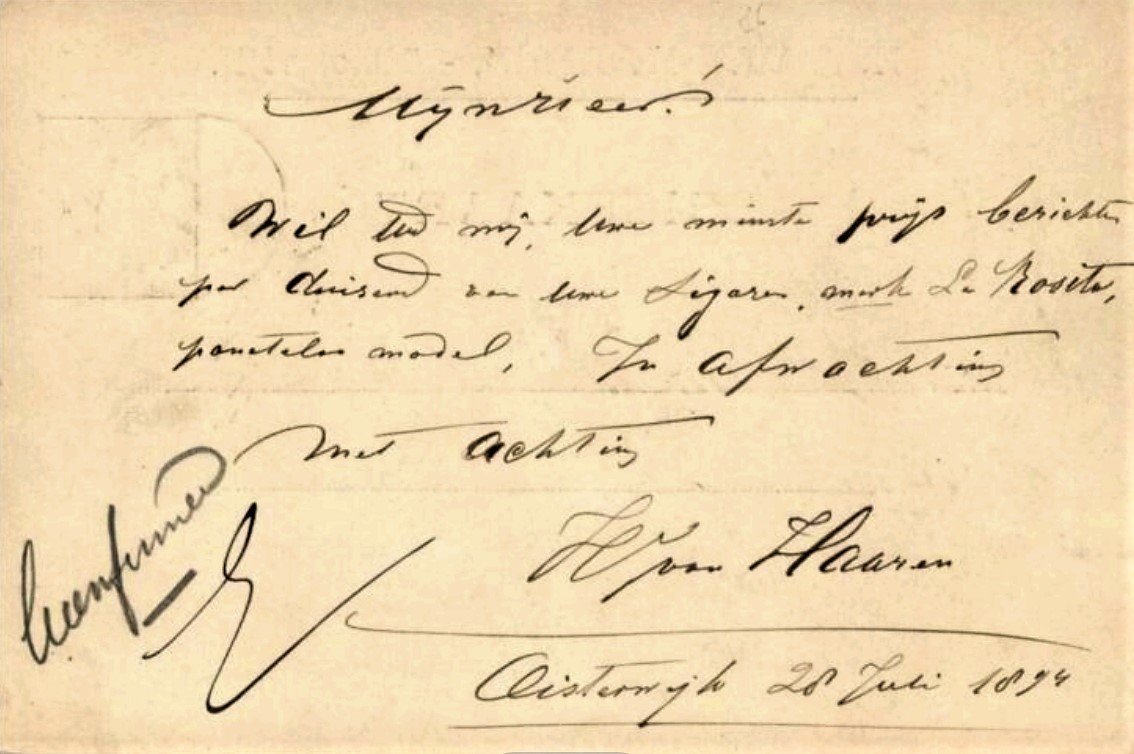 Mijnheer!
Wil Ued mij, Uwe minste prijs berichten
per duisend van Uwe Sigaren, merk La Rosita,
panatelas model, In afwachting
Met achting
W van Haaren
Oisterwijk 28 Juli 1894